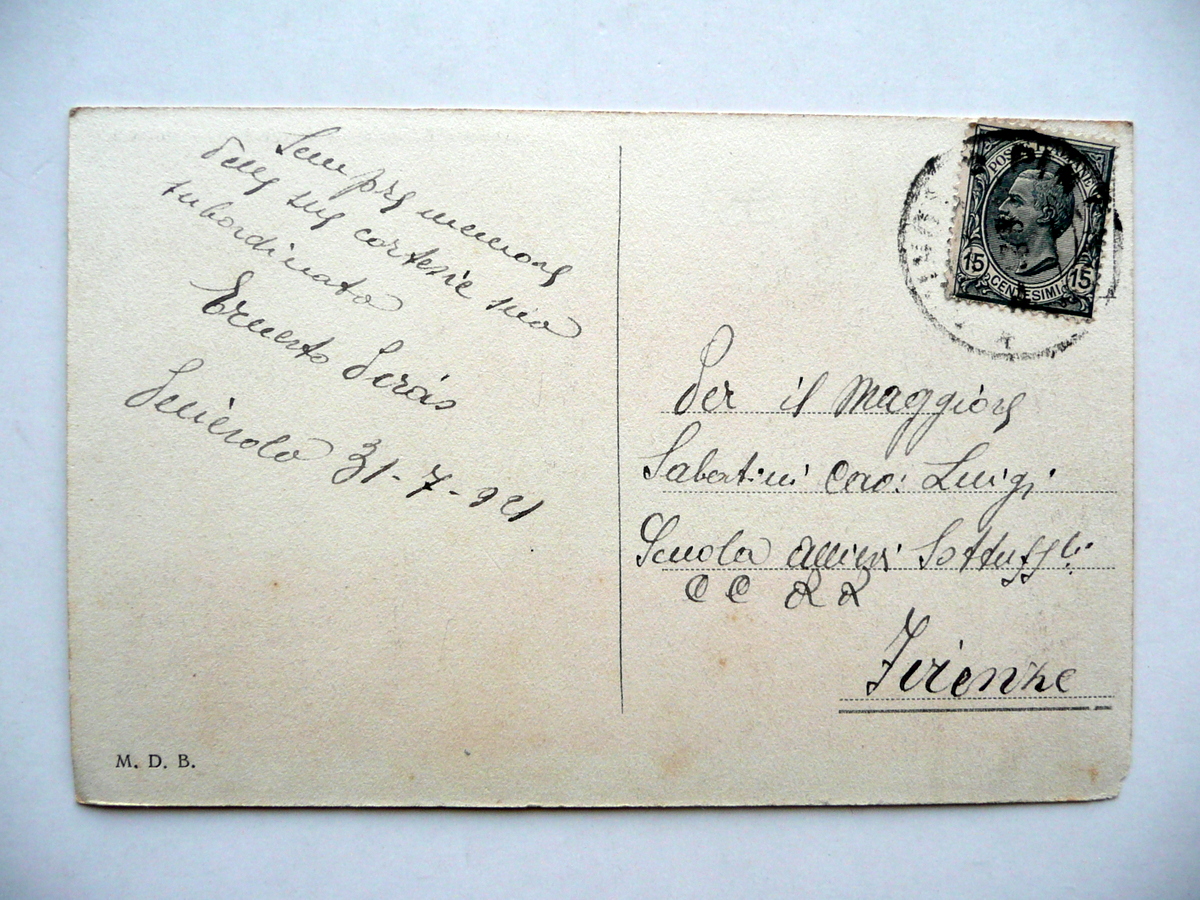 Sempre memore
delle sue cortesie suo
subordinato
Ernesto
31-7-921
M. D. B.
POSTE ITALIANE
15 CENTESIMI 15
Per il Maggiore
Sabatini Cav: Luigi
Scuola Allievi Sottuff.li
CC RR
Firenze